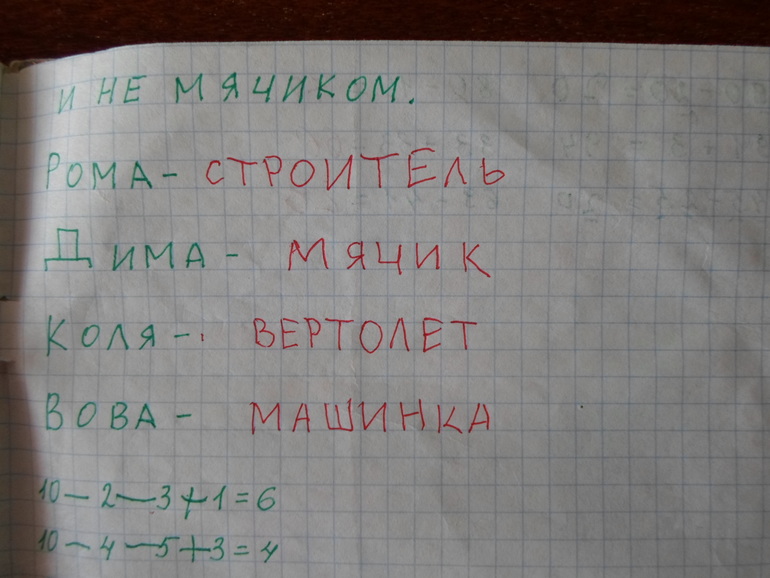 И НЕ МЯЧИКОМ.
РОМА- СТРОИТЕЛЬ
ДИМА- МЯЧИК
КОЛЯ- ВЕРТОЛЕТ
ВОВА- МАШИНКА
10-2-3+1=6
10-4-5+3=4